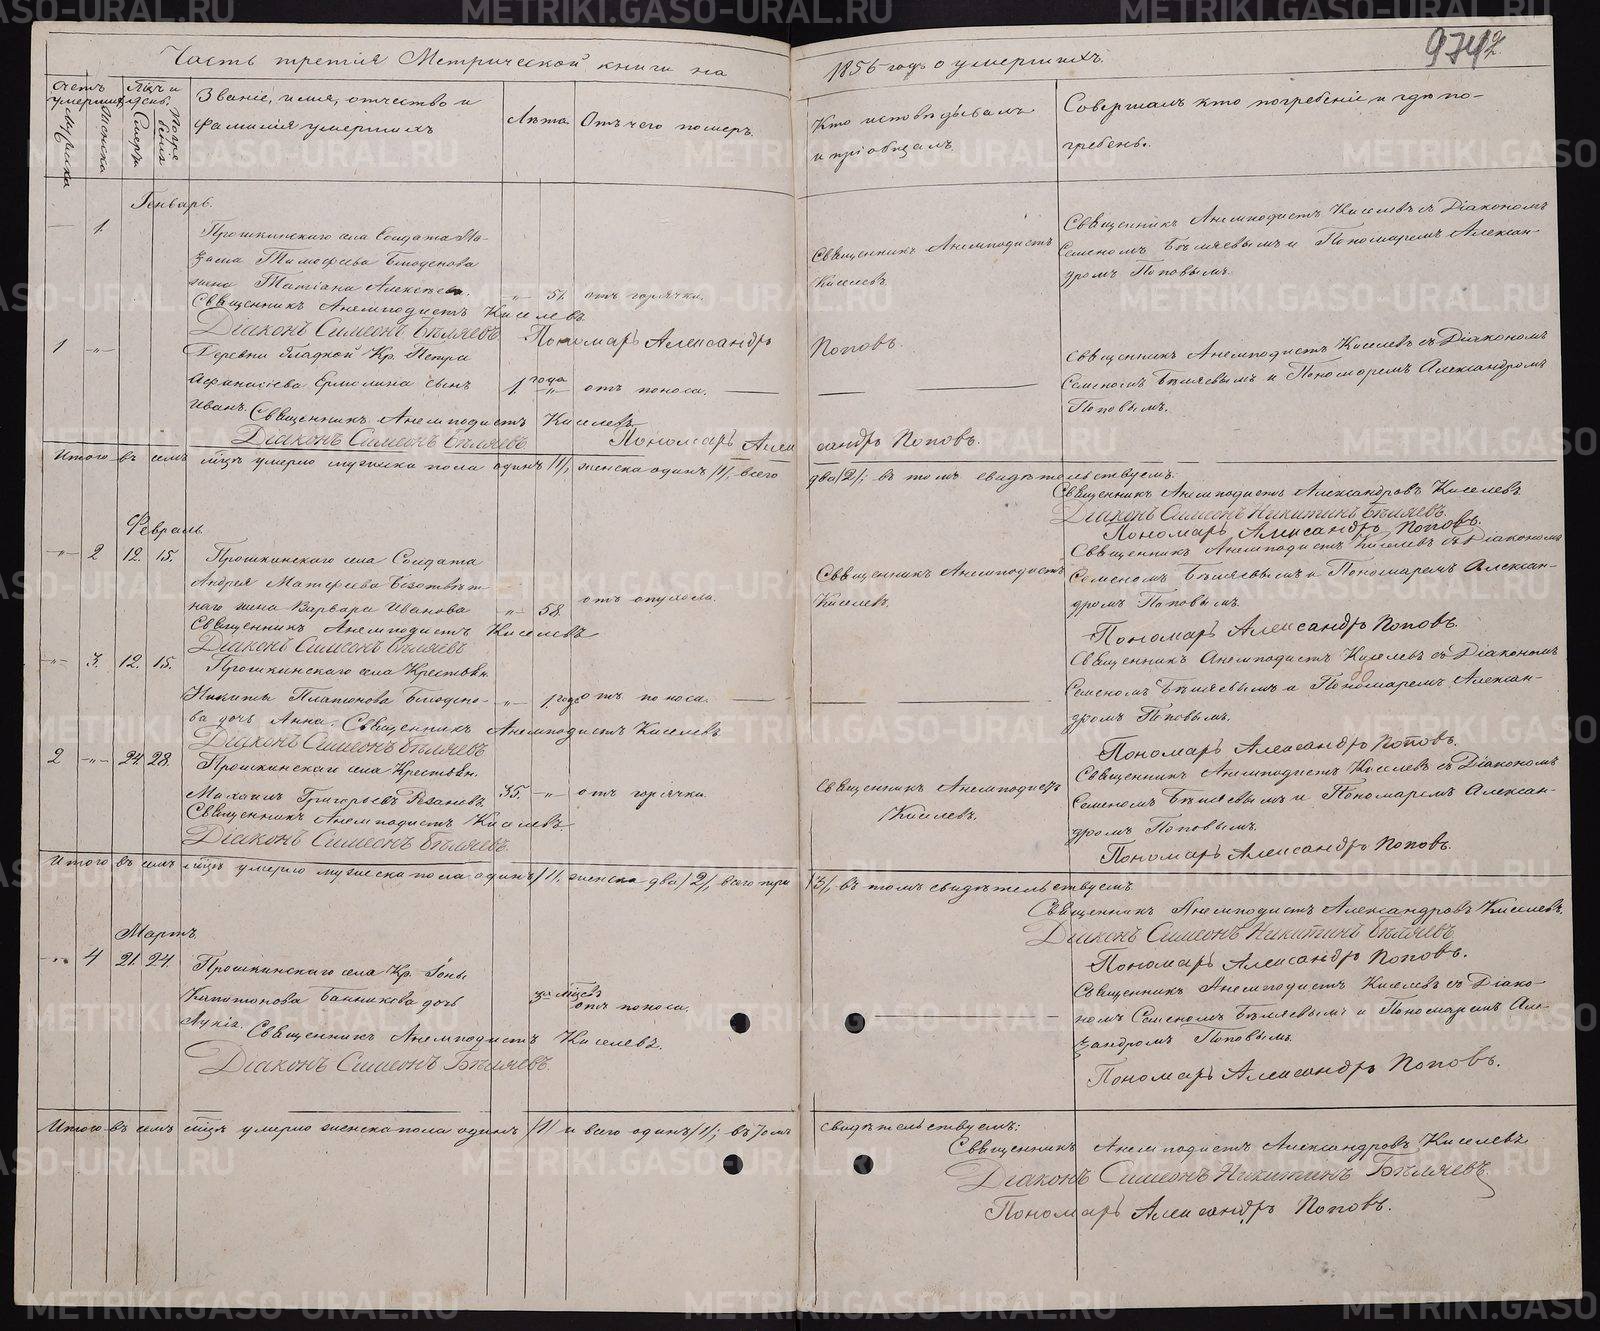 Часть третія Метрической книги на 1856 годъ о умершихъ.
974
2
Счетъ умершихъ
Мужска
Женска
Мѣсяцъ и день
Смерти
Погребенія
Званіе, имя, отчество и
фамилія умершихъ
Лѣта.
Отъ чего померъ.
Кто исповѣдывалъ
и пріобщалъ.
Совершалъ кто погребеніе и гдѣ по-
гребенъ.
Генварь.
1.
Прошкинскаго села Солдата
Тимофеева
жена Татіана Алексѣева.
51. отъ горячки.
Священникъ Анемподистъ
Киселевъ.
Священникъ Анемподистъ Киселевъ съ Діакономъ
Семеномъ Бѣляевымъ и Пономаремъ Алексан-
дромъ Поповымъ.
Священникъ Анемподистъ Киселевъ
Діаконъ Симеонъ Бѣляевъ Пономарь Александръ Поповъ.
1 -"-
Деревни Гладкой Кр. Петра
Афанасіева Ермолина сынъ
Иванъ.
1. года -"- отъ поноса.
Священникъ Анемподистъ Киселевъ съ Діакономъ
Семеномъ Бѣляевымъ и Пономаремъ Александромъ
Поповымъ.
Священникъ Анемподистъ Киселевъ
Діаконъ Симеонъ Бѣляевъ Пономарь Александръ Поповъ.
Итого въ семъ мѣсяцѣ умерло мужска пола одинъ /1/, женска одинъ /1/, всего два /2/; въ томъ свидѣтельствуемъ.
Священникъ Анемподистъ Александровъ Киселевъ
Діаконъ Симеонъ Никитинъ Бѣляевъ.
Пономарь Александръ Поповъ.
Февраль.
-"- 2 12. 15.
Прошкинскаго села Солдата
Андрея Матфеева Безотвѣт
наго жена Варвара Иванова
-"- 58. отъ опухоли.
Священникъ Анемподистъ
Киселевъ.
Священникъ Анемподистъ Киселевъ съ Діакономъ
Семеномъ Бѣляевымъ и Пономаремъ Алексан-
дромъ Поповымъ.
Священникъ Анемподистъ Киселевъ
Діаконъ Симеонъ Бѣляевъ
Пономарь Александръ Поповъ.
-"- 3. 12. 15.
Прошкинскаго села Крестьян.
Никиты Платонова
ва дочь Анна.
-"- 1. года отъ поноса.
Священникъ Анемподистъ Киселевъ съ Діакономъ
Семеномъ Бѣляевымъ и Пономаремъ Алексан-
дромъ Поповымъ.
Священникъ Анемподистъ Киселевъ
Діаконъ Симеонъ Бѣляевъ
Пономарь Александръ Поповъ.
2 -"- 24. 28.
Прошкинскаго села Крестьян.
Михаилъ Григорьевъ Рязановъ
35. -"- отъ горячки.
Священникъ Анемподистъ
Киселевъ.
Священникъ Анемподистъ Киселевъ съ Діакономъ
Семеномъ Бѣляевымъ и Пономаремъ Алексан-
дромъ Поповымъ.
Священникъ Анемподистъ Киселевъ
Діаконъ Симеонъ Бѣляевъ
Пономарь Александръ Поповъ.
Итого въ семъ мѣсяцѣ умерло мужска пола одинъ /1/, женска два /2/, всего три /3/, въ томъ свидѣтельствуемъ
Священникъ Анемподистъ Александровъ Киселевъ.
Діаконъ Симеонъ Никитинъ Бѣляевъ
Пономарь Александръ Поповъ.
Мартъ.
-"- 4 21. 24.
Прошкинскаго села Кр. Іоны
Капитонова Банникова дочь
Лукія.
отъ поноса.
Священникъ Анемподистъ Киселевъ съ Діако-
номъ Семеномъ Бѣляевымъ и Пономаремъ Алек-
зандромъ Поповымъ.
Священникъ Анемподистъ Киселевъ.
Діаконъ Симеонъ Бѣляевъ.
Пономарь Александръ Поповъ.
Итого въ семъ мѣсяцѣ умерло женска пола одинъ /1/ и всего одинъ /1/; въ томъ свидѣтельствуемъ:
Священникъ Анемподистъ Александровъ Киселевъ.
Діаконъ Симеонъ Никитинъ Бѣляевъ.
Пономарь Александръ Поповъ.
METRIKI.GASO-URAL.RU